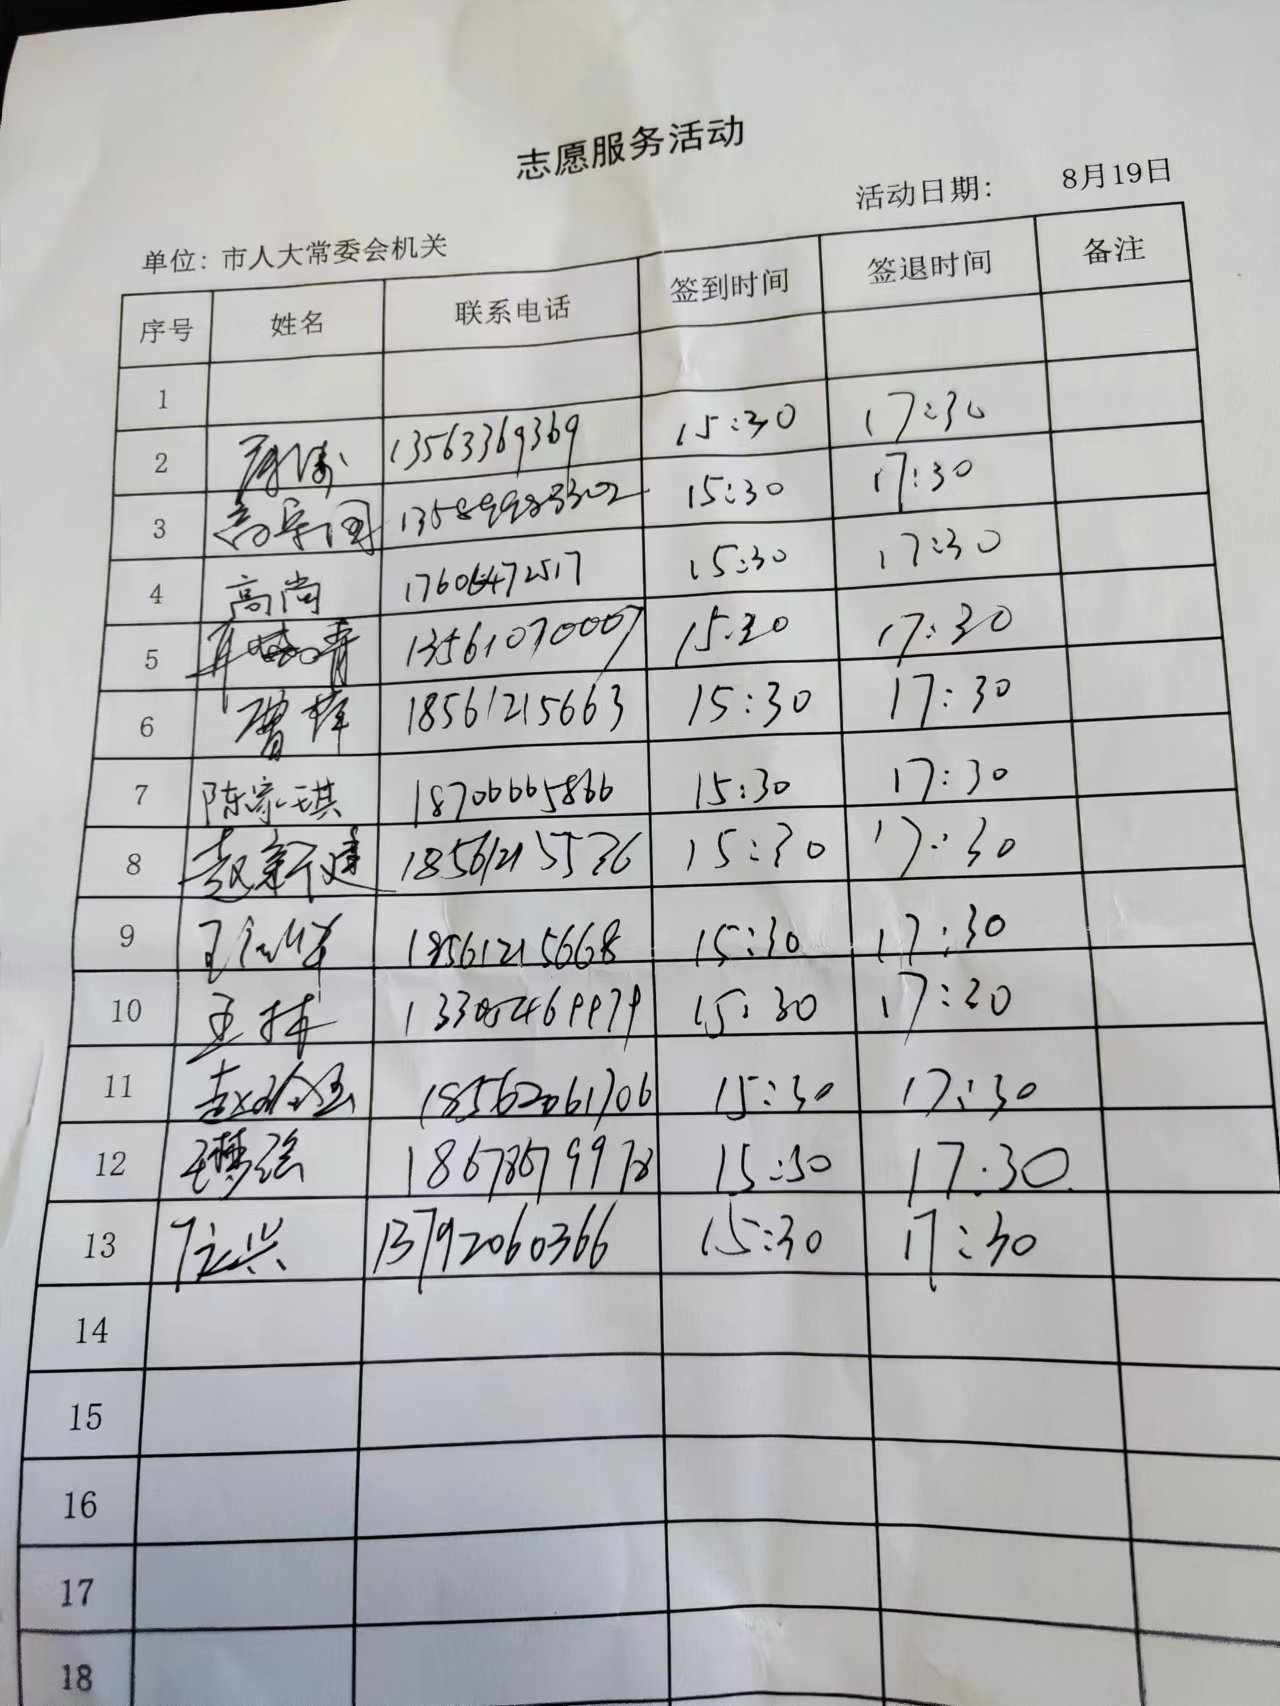 志愿服务活动
单位：市人大常委会机关 活动日期： 8月19日
序号 姓名 联系电话 签到时间 签退时间 备注
1
2 13563369369 15:30 17:30
3 15:30 17:30
4 高尚 17606472517 15:30 17:30
5 13561070007 15:30 17:30
6 曹梓 18561215663 15:30 17:30
7 陈家琪 18706665866 15:30 17:30
8 赵新建 18561215536 15:30 17:30
9 18561215668 15:30 17:30
10 王林 15:30 17:30
11 18562061706 15:30 17:30
12 18678679978 15:30 17:30
13 13792060366 15:30 17:30
14
15
16
17
18